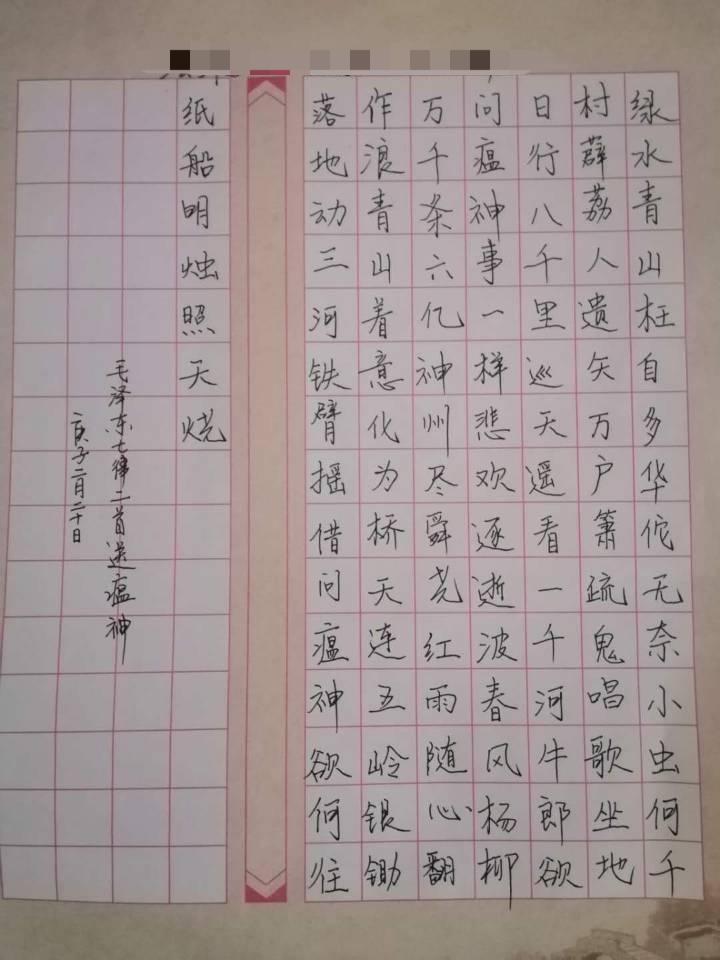 绿水青山枉自多华佗无奈小虫何千
村薜荔人遗矢万户箫疏鬼唱歌坐地
日行八千里巡天遥看一千河牛郎欲
问瘟神事一样悲欢逐逝波春风杨柳
万千条六亿神州尽舜尧红雨随心翻
作浪青山着意化为桥天连五岭银锄
落地动三河铁臂摇借问瘟神欲何往
纸船明烛照天烧
毛泽东七律二首送瘟神
庚子二月二十日